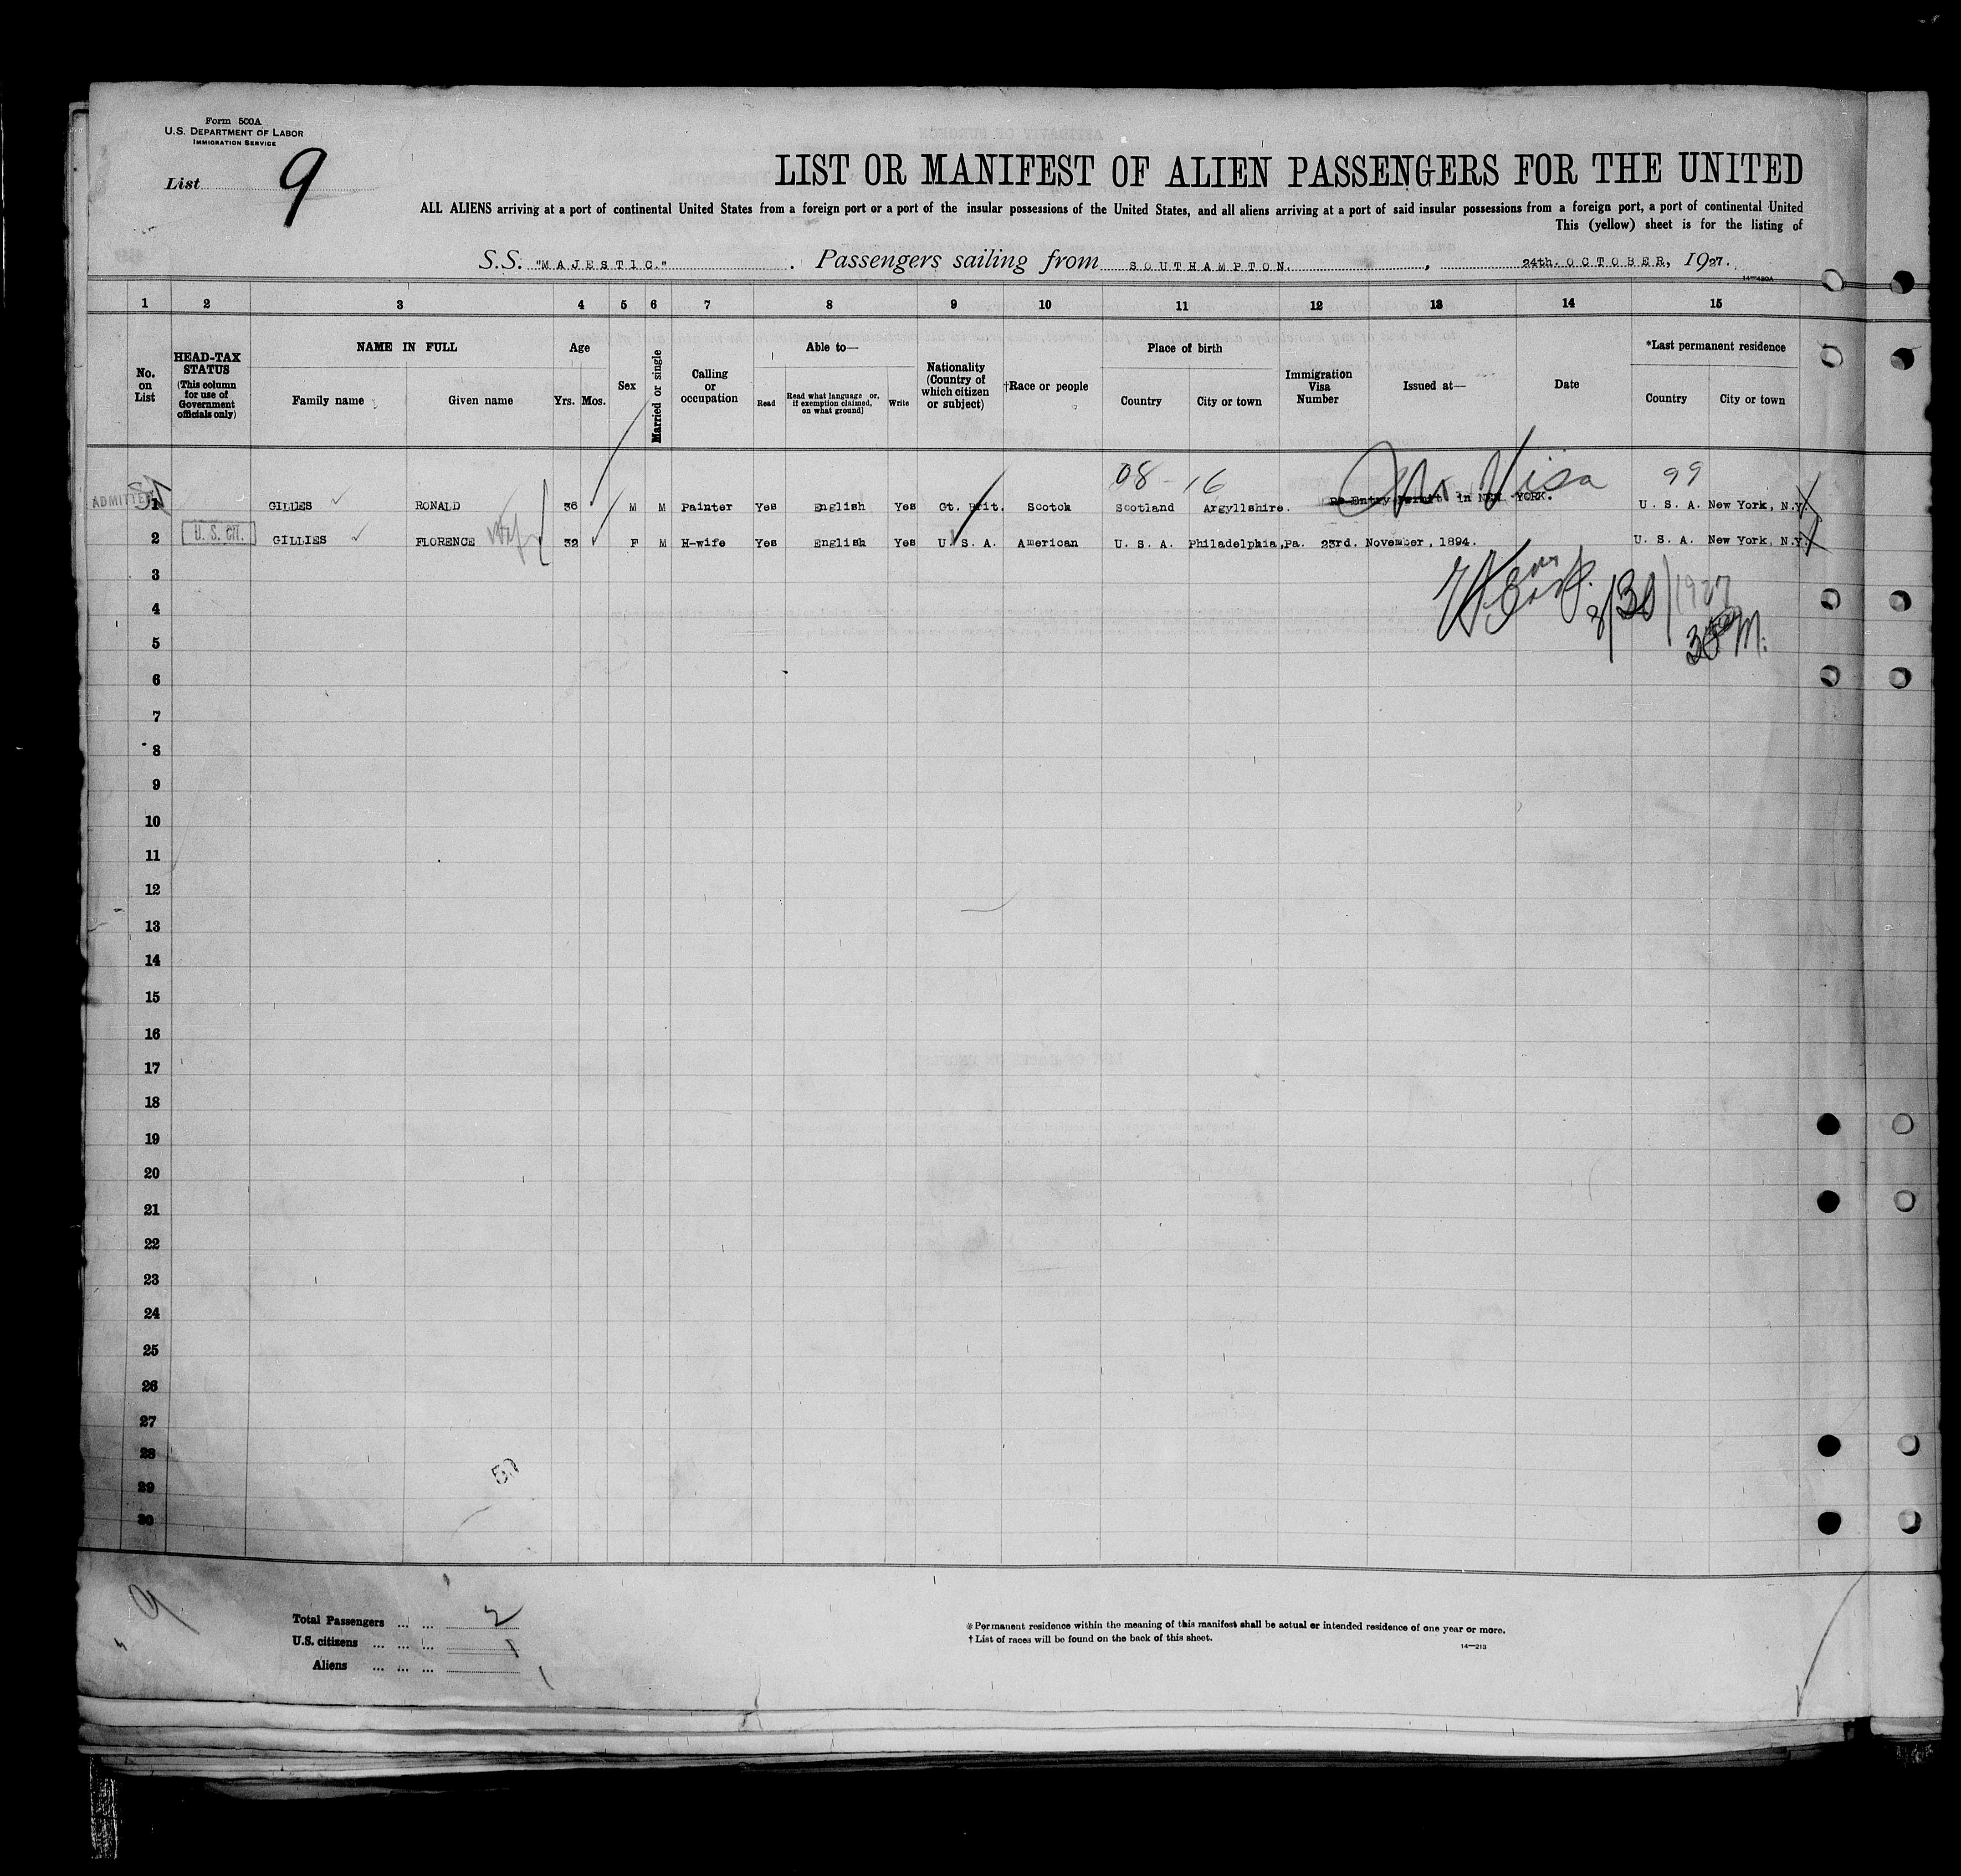 Form 500A
U.S. DEPARTMENT OF LABOR
IMMIGRATION SERVICE
List 9
LIST OR MANIFEST OF ALIEN PASSENGERS FOR THE UNITED
ALL ALIENS arriving at a port of continental United States from a foreign port or a port of the insular possessions of the United States, and all aliens arriving at a port of said insular possessions from a foreign port, a port of continental United
This (yellow) sheet is for the listing of
S.S. "MAJESTIC." Passengers sailing from SOUTHAMPTON. , 24th. OCTOBER, 1927.
14—420A
1 2 3 4 5 6 7 8 9 10 11 12 13 14 15
No. on List
HEAD-TAX STATUS (This column for use of Government officials only)
NAME IN FULL
Family name Given name
Age
Yrs. Mos.
Sex
Married or single
Calling or occupation
Able to—
Read
Read what language or, if exemption claimed, on what ground)
Write
Nationality (Country of which citizen or subject)
†Race or people
Place of birth
Country City or town
Immigration Visa Number
Issued at—
Date
*Last permanent residence
Country City or town
08 - 16 Visa 99
ADMITTED
1 GILLIES RONALD 36 M M Painter Yes English Yes Gt. Brit. Scotch Scotland Argyllshire. Re-Entry Permit in NEW YORK. U. S. A. New York, N.Y.
2 U. S. CIT. GILLIES FLORENCE wife 32 F M H-wife Yes English Yes U. S. A. American U. S. A. Philadelphia, Pa. 23rd. November, 1894. U. S. A. New York, N.Y.
3
8/30/1927
4
5
6
7
8
9
10
11
12
13
14
15
16
17
18
19
20
21
22
23
24
25
26
27
28
29
30
9
Total Passengers ... ... 2
U.S. citizens ... ... ... 1
Aliens ... ... ... 1
*Permanent residence within the meaning of this manifest shall be actual or intended residence of one year or more.
†List of races will be found on the back of this sheet.
14—213